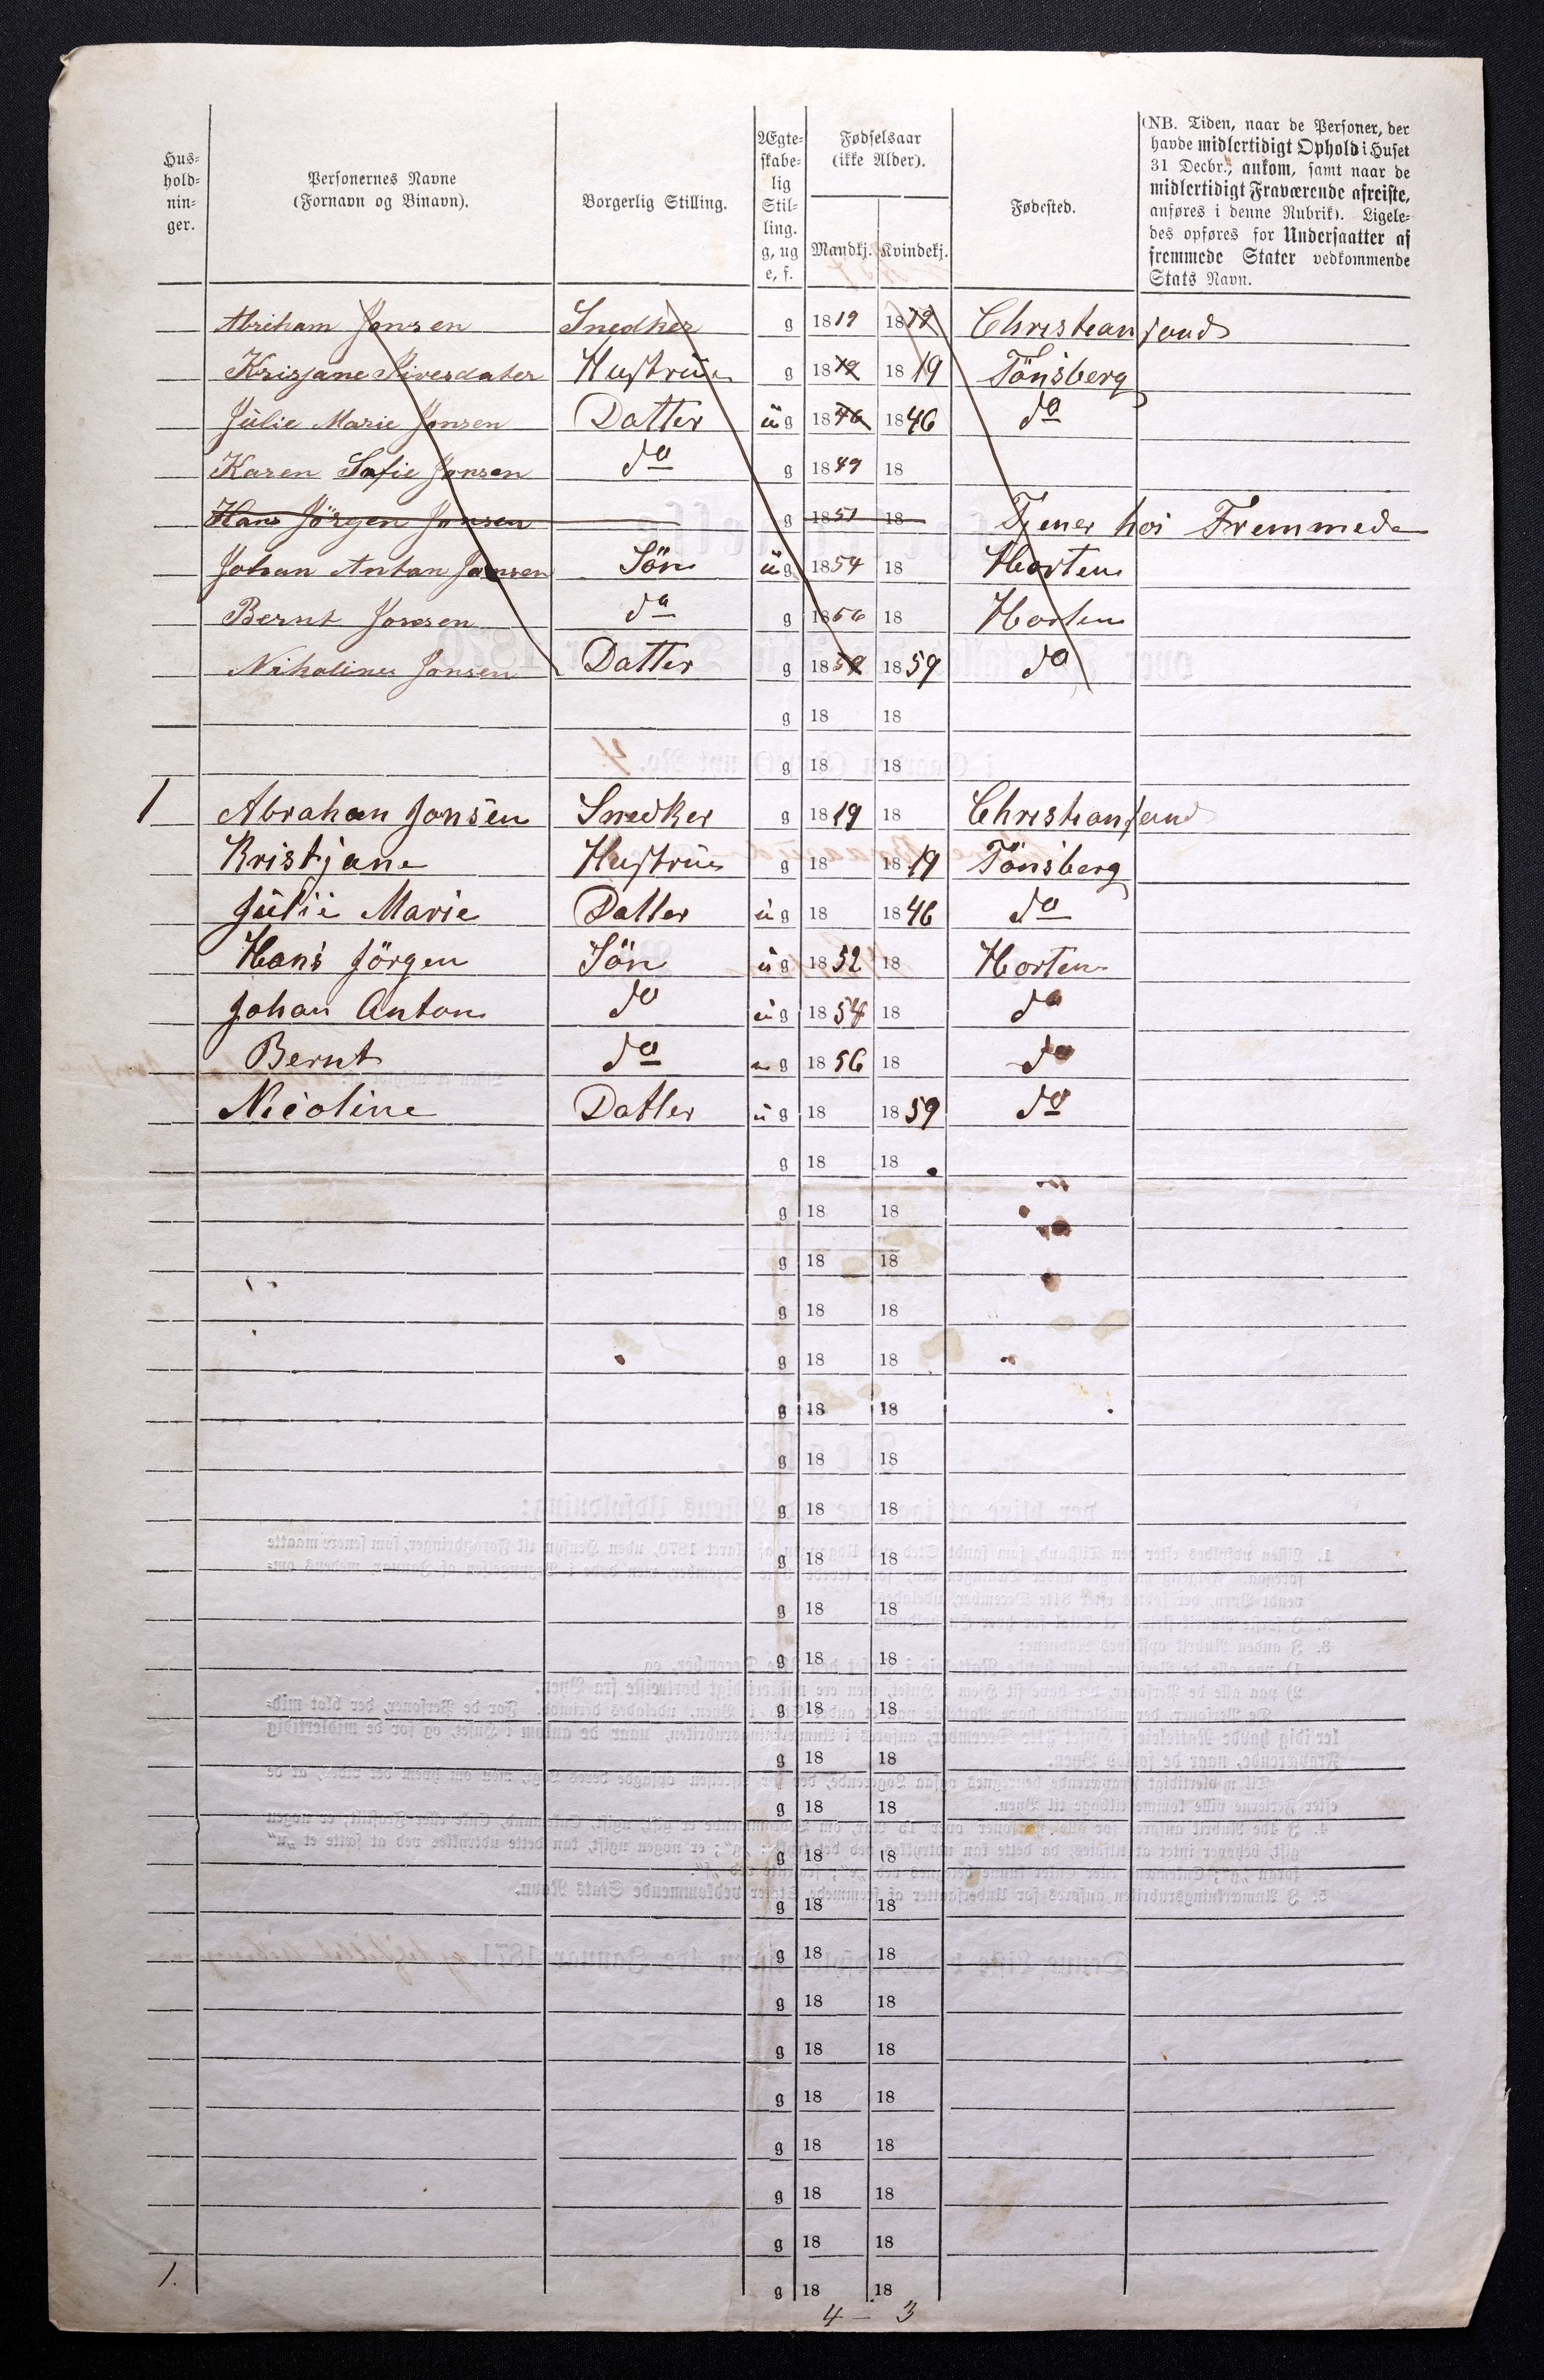 Hus-
hold-
nin-
ger.
Personernes Navne
(Fornavn og Binavn).
Borgerlig Stilling.
Ægte-
skabe-
lig
Stil-
ling.
g, ug
e, f.
Fødselsaar
(ikke Alder).
Mandkj. Kvindekj.
Fødested.
(NB. Tiden, naar de Personer, der
havde midlertidigt Ophold i Huset
31 Decbr., ankom, samt naar de
midlertidigt Fraværende afreiste,
anføres i denne Rubrik). Ligele-
des opføres for Undersaatter af
fremmede Stater vedkommende
Stats Navn.
Abriham Jonsen Snedker g 1819 1819 Christiansand
Krisjane Siversdater Hustrüe g 1819 1819 Tönsberg
Jülie Marie Jonsen Datter üg 1846 1846 do
Karen Sofie Jonsen do g 1849 18
Hans Jörgen Jonsen g 1851 18 Tjener hos Fremmede
Johan Antan Jonsen Sön üg 1854 18 Horten
Bernt Jonsen do g 1856 18 Horten
Nikoline Jonsen Datter g 1859 1859 do
g 18 18
g 18 18
1 Abraham Jonsen Snedker g 1819 18 Christiansand
Kristjane Hustrüe g 18 1819 Tönsberg
Jülie Marie Datter üg 18 1846 do
Hans Jörgen Sön üg 1852 18 Horten
Johan Anton do üg 1854 18 do
Bernt do ug 1856 18 do
Nicoline Datter üg 18 1859 do
g 18 18
g 18 18
g 18 18
g 18 18
g 18 18
g 18 18
g 18 18
g 18 18
g 18 18
g 18 18
g 18 18
g 18 18
g 18 18
g 18 18
g 18 18
g 18 18
g 18 18
g 18 18
g 18 18
g 18 18
g 18 18
g 18 18
g 18 18
1. g 18 18
4 — 3